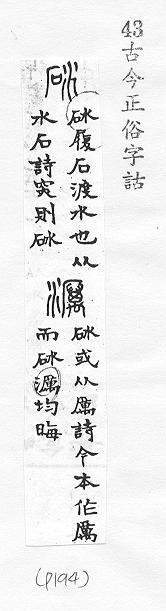 43
古今正俗字詁
砅
砅履石渡水也从
水石詩穼則砅
濿
砅或从厲詩今本作厲
而砅濿均晦
(P194)